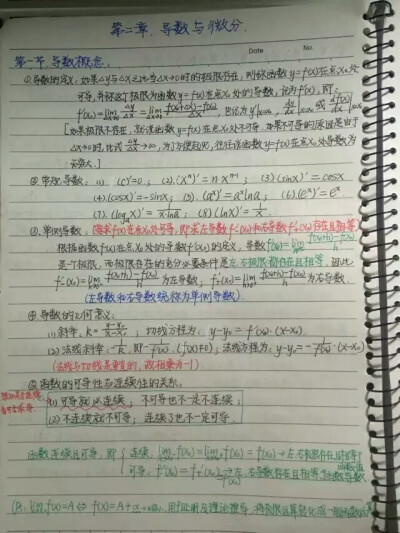 第二章、导数与微分.
Date    No.
第一节、导数概念.
①导数的定义: 如果△y与△x之比当△x→0时的极限存在, 则称函数y=f(x)在点x₀处
可导, 并称这个极限为函数y=f(x)在点x₀处的导数, 记为f'(x₀), 即:
f'(x₀)=lim △y/△x = lim (f(x₀+△x)-f(x₀))/△x, 也记为y'|x=x₀, dy/dx|x=x₀ 或 df(x)/dx|x=x₀
[如果极限不存在, 就说函数y=f(x)在点x₀处不可导. 如果不可导的原因是由于
△x→0时, 比式 △y/△x→∞, 为了方便起见, 往往说函数y=f(x)在点x₀处导数为
无穷大.]
②常见导数: (1). (C)'=0; (2). (xⁿ)'=n·xⁿ⁻¹; (3). (sinx)'=cosx
(4). (cosx)'=-sinx; (5). (aˣ)'=aˣlna; (6). (eˣ)'=eˣ
(7). (logₐx)'=1/(xlna); (8). (lnx)'=1/x
③、单侧导数:
根据函数f(x)在点x₀处的导数f'(x₀)的定义, 导数f'(x₀)=lim (f(x₀+h)-f(x₀))/h
是一个极限, 而极限存在的充分必要条件是左、右极限都存在且相等. 因此
f'₋(x₀)=lim (f(x₀+h)-f(x₀))/h 为左导数; f'₊(x₀)=lim (f(x₀+h)-f(x₀))/h 为右导数.
(左导数和右导数统称为单侧导数)
④导数的几何意义:
(1). 斜率: k=(y-y₀)/(x-x₀); 切线方程为: y-y₀=f'(x₀)·(x-x₀)
(2). 法线斜率: -1/k, 即-1/f'(x₀). (f'(x₀)≠0); 法线方程为: y-y₀=-1/f'(x₀)·(x-x₀)
(法线与切线是垂直的, 故相乘为-1)
⑤函数的可导性与连续性的关系.
(1)可导就必连续; 不可导也不一定不连续;
(2)不连续就不可导; 连续了也不一定可导.
函数连续且可导, 即